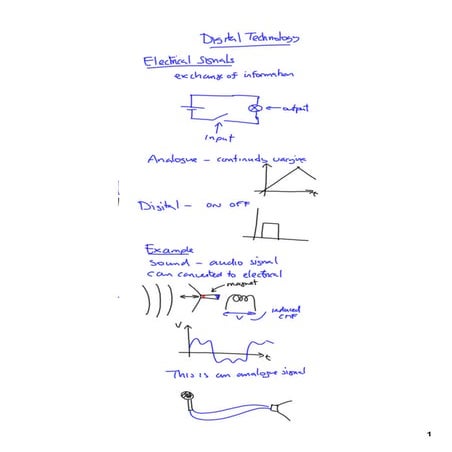 Digital Technology
Electrical Signals
exchange of information
output
input
Analogue - continously varying
t
Digital - ON OFF
Example
sound - audio signal
can converted to electrical
magnet
induced
EMF
V
V
t
This is an analogue signal
1